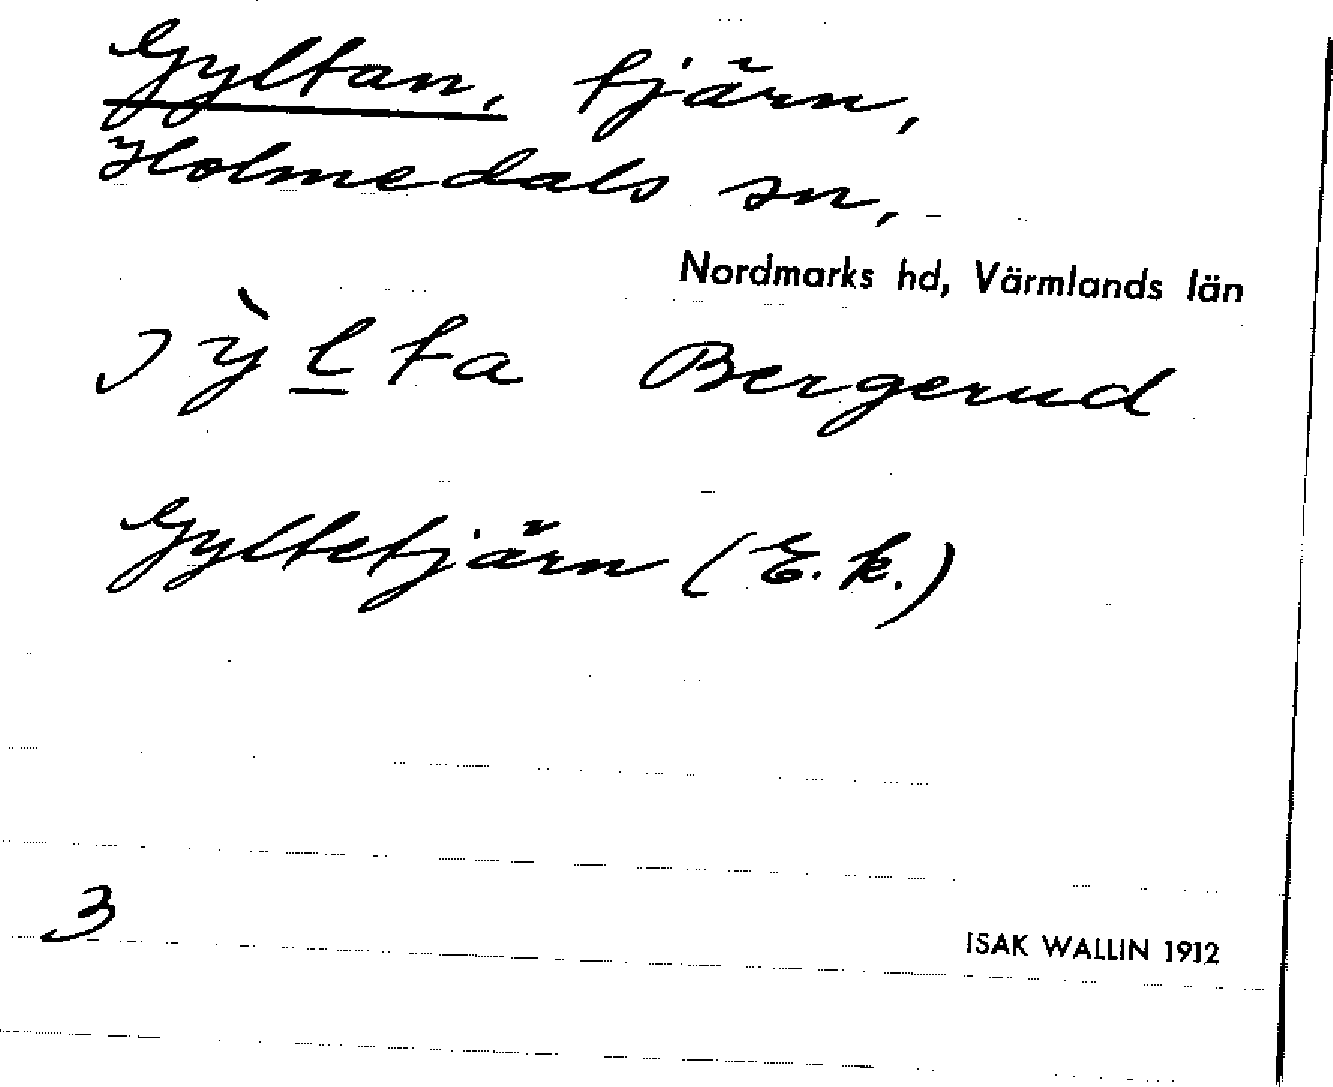 Gyltan, tjärn,
Holmedals sn,
Nordmarks hd, Värmlands län
jỳl̲ta Bergerud
Gyltetjärn (E.k.)
3
ISAK WALLIN 1912